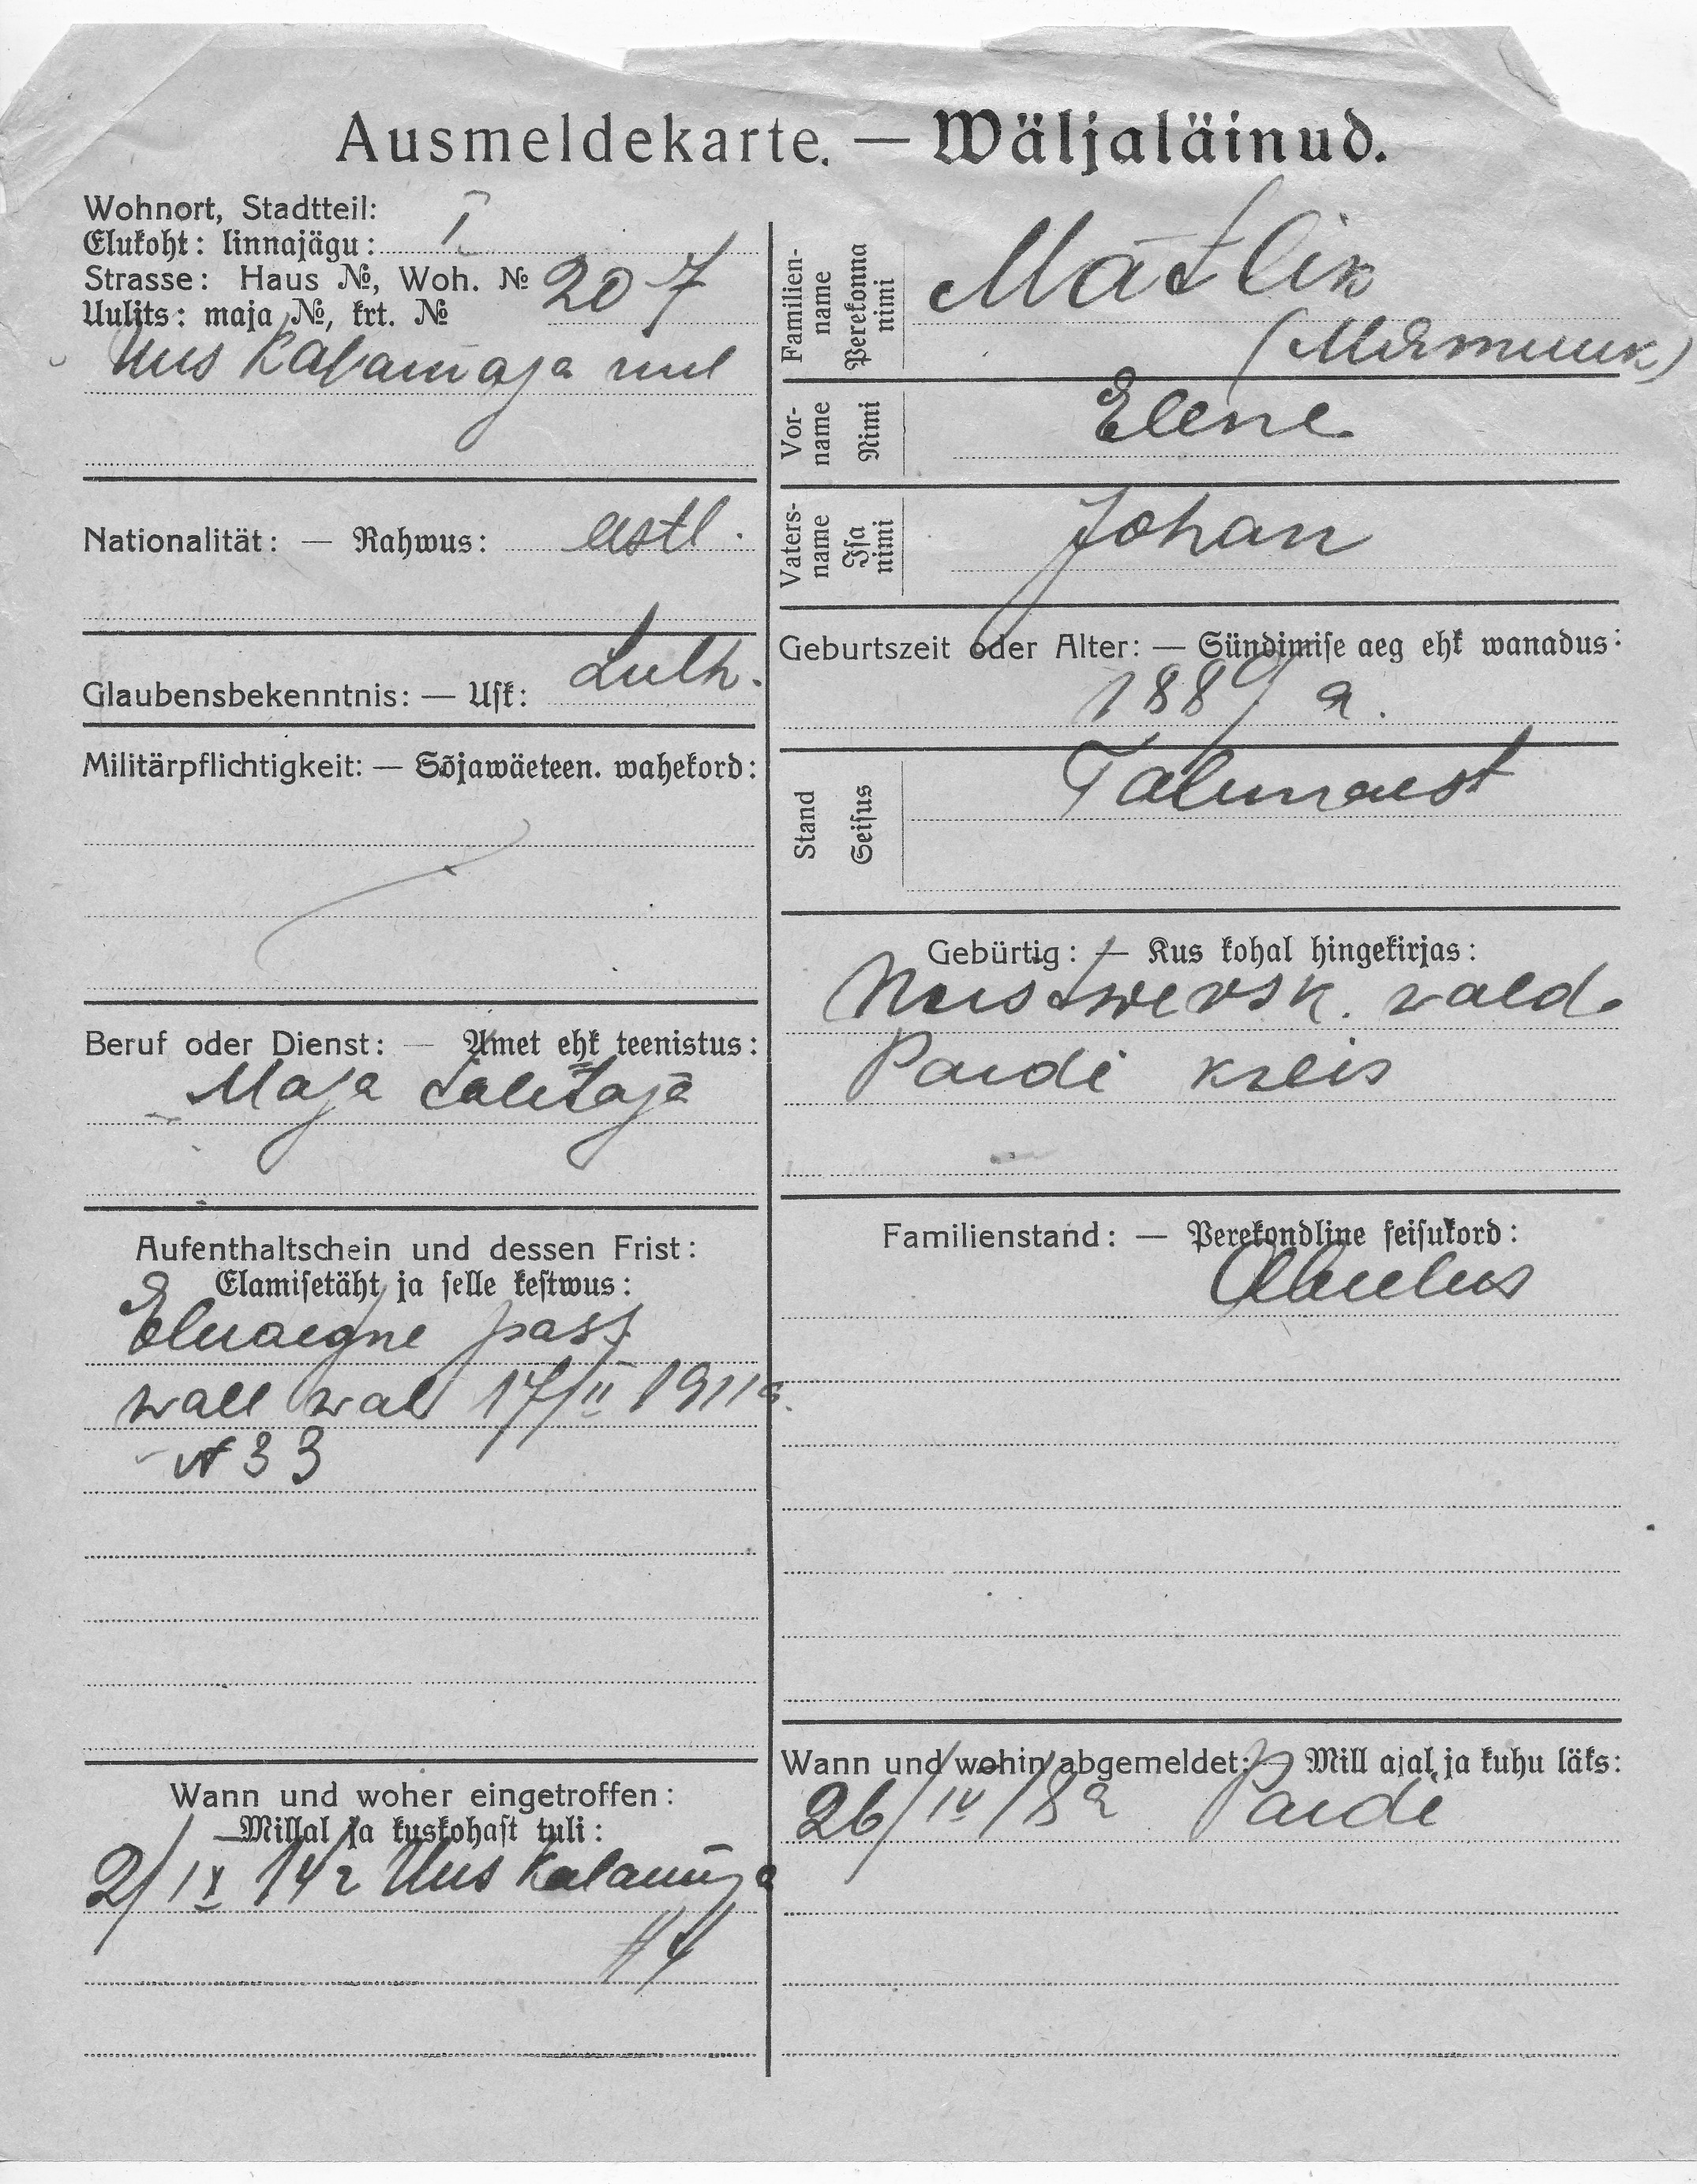 Ausmeldekarte. — Wäljaläinud.
Wohnort, Stadtteil: I
Elukoht: linnajägu:
Strasse: Haus №, Woh. № 20-7
Uulits: maja №, krt. №
Uus Kalamaja uul
Nationalität: — Rahwus: estl.
Glaubensbekenntnis: — Usk: Luth.
Militärpflichtigkeit: — Sõjawäeteen. wahekord:
Beruf oder Dienst: — Amet ehk teenistus:
Maja talitaja
Aufenthaltschein und dessen Frist:
Elamisetäht ja selle kestwus:
Eluaegne pass
wall wal 17/II 1911 a.
№ 33
Wann und woher eingetroffen:
—Millal ja kuskohast tuli:
2/IX 14 Uus Kalamaja
Familienname
Perekonna nimi
Mätlik
(Мятлик)
Vorname
Nimi
Elene
Vatersname
Isa nimi
Johan
Geburtszeit oder Alter: — Sündimise aeg ehk wanadus:
1889 a.
Stand
Seisus
Talunaest
Gebürtig: — Kus kohal hingekirjas:
wald.
Paidi kreis
Familienstand: — Perekondline seisukord:
Abielus
Wann und wohin abgemeldet: — Mill ajal ja kuhu läks:
26/IV 18 a Paidi